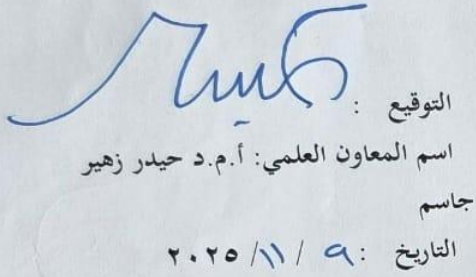 التوقيع :
اسم المعاون العلمي: أ.م.د حيدر زهير
جاسم
التاريخ : ٩ / ١١ / ٢٠٢٥